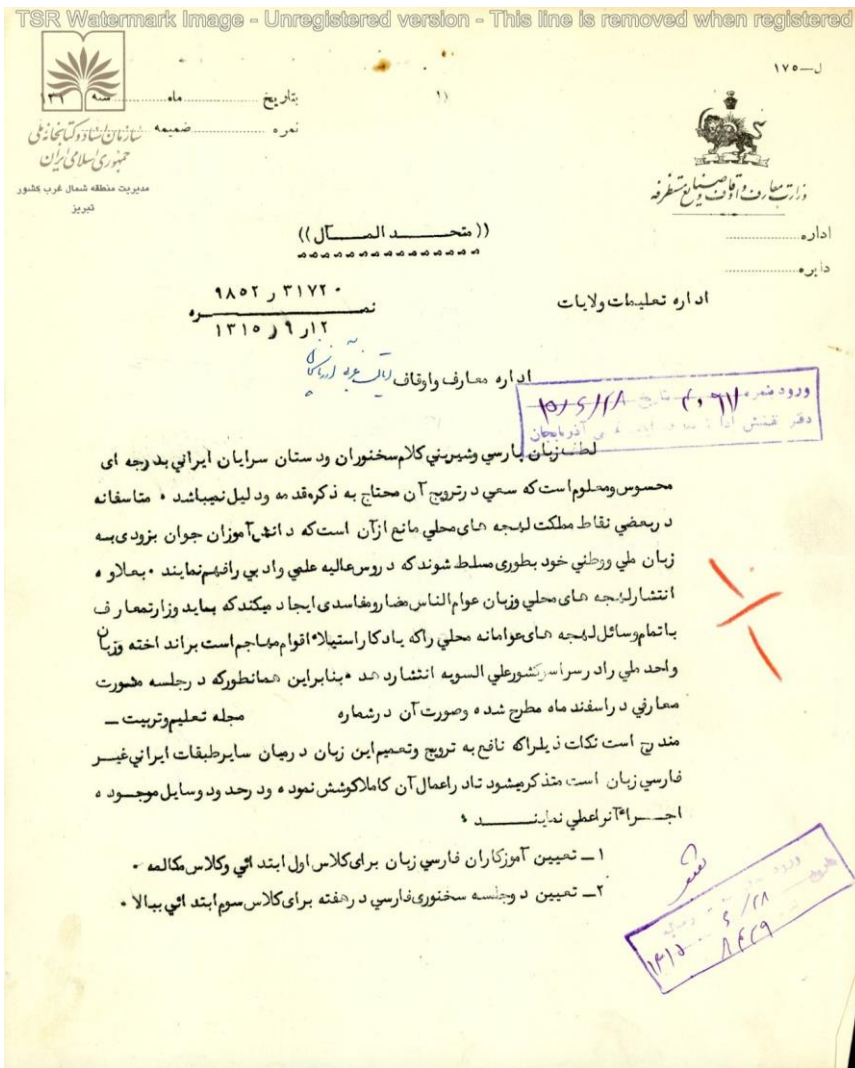 TSR Watermark Image - Unregistered version - This line is removed when registered
ل—۱۷۵
بتاریخ ............ ماه ............ سنه ۱۳۱
نمره ............ ضمیمه ............
سازمان اسناد و کتابخانه ملی
جمهوری اسلامی ایران
مدیریت منطقه شمال غرب کشور
تبریز
وزارت معارف و اوقاف و صنایع مستظرفه
اداره
دایره
(( متحـــد المـــآل ))
اداره تعلیمات ولایات
۳۱۷۲۰ ر ۹۸۵۲
نمـــره
۱۲ر ۹ ر ۱۳۱۵
اداره معارف واوقاف
ورود بنمره تاریخ ۱۵/۶/۲۸
دفتر آذربایجان
لطف زبان پارسي وشیریني کلام سخنوران ود ستان سرایان ایراني بدرجه ای
محسوس ومعلوم است که سعي د رترویج آن محتاج به ذکرمقد مه ود لیل نمیباشد ۰ متاسفانه
د ربعضي نقاط مملکت لهجه های محلي مانع ازآن است که د انش آموزان جوان بزودی بـه
زبان ملي ووطني خود بطوری مسلط شوند که د روس عالیه علمي واد بي رافهم نمایند ۰ بعلاو ه
انتشارلهجه های محلي وزبان عوام الناس مضارومفاسدی ایجا د میکند که بـاید وزارتمعا ر ف
با تمام وسائل لهجه های عوامانه محلي راکه یاد کا راستیلاء اقوام مهاجم است براند اخته وزبان
واحد ملي راد رسراسرکشورعلي السویه انتشارد هد ۰ بنابراین همانطورکه د رجلسه مشورت
معارفي د راسفند ماه مطرح شد ه وصورت آن د رشماره مجله تعلیم وتربیت —
مند رج است نکات ذیلراکه نافع به ترویج وتعمیم این زبان د رمیان سایرطبقات ایراني غیـــر
فارسي زبان است متذ کرمیشود تاد راعمال آن کاملا کوشش نمود ه ود رحد ود وسایل موجـــود ه
اجـــراء آنراعملي نماینـــــد ؛
۱ـ تعیین آموزکاران فارسي زبان برای کلاس اول ابتد ائي وکلاس مکالمه ۰
۲ـ تعیین د وجلسه سخنوری فارسي د رهفته برای کلاس سوم ابتد ائي ببالا ۰
ورود
۶/۲۸
۱۳۱۵ ۸۴۲۹